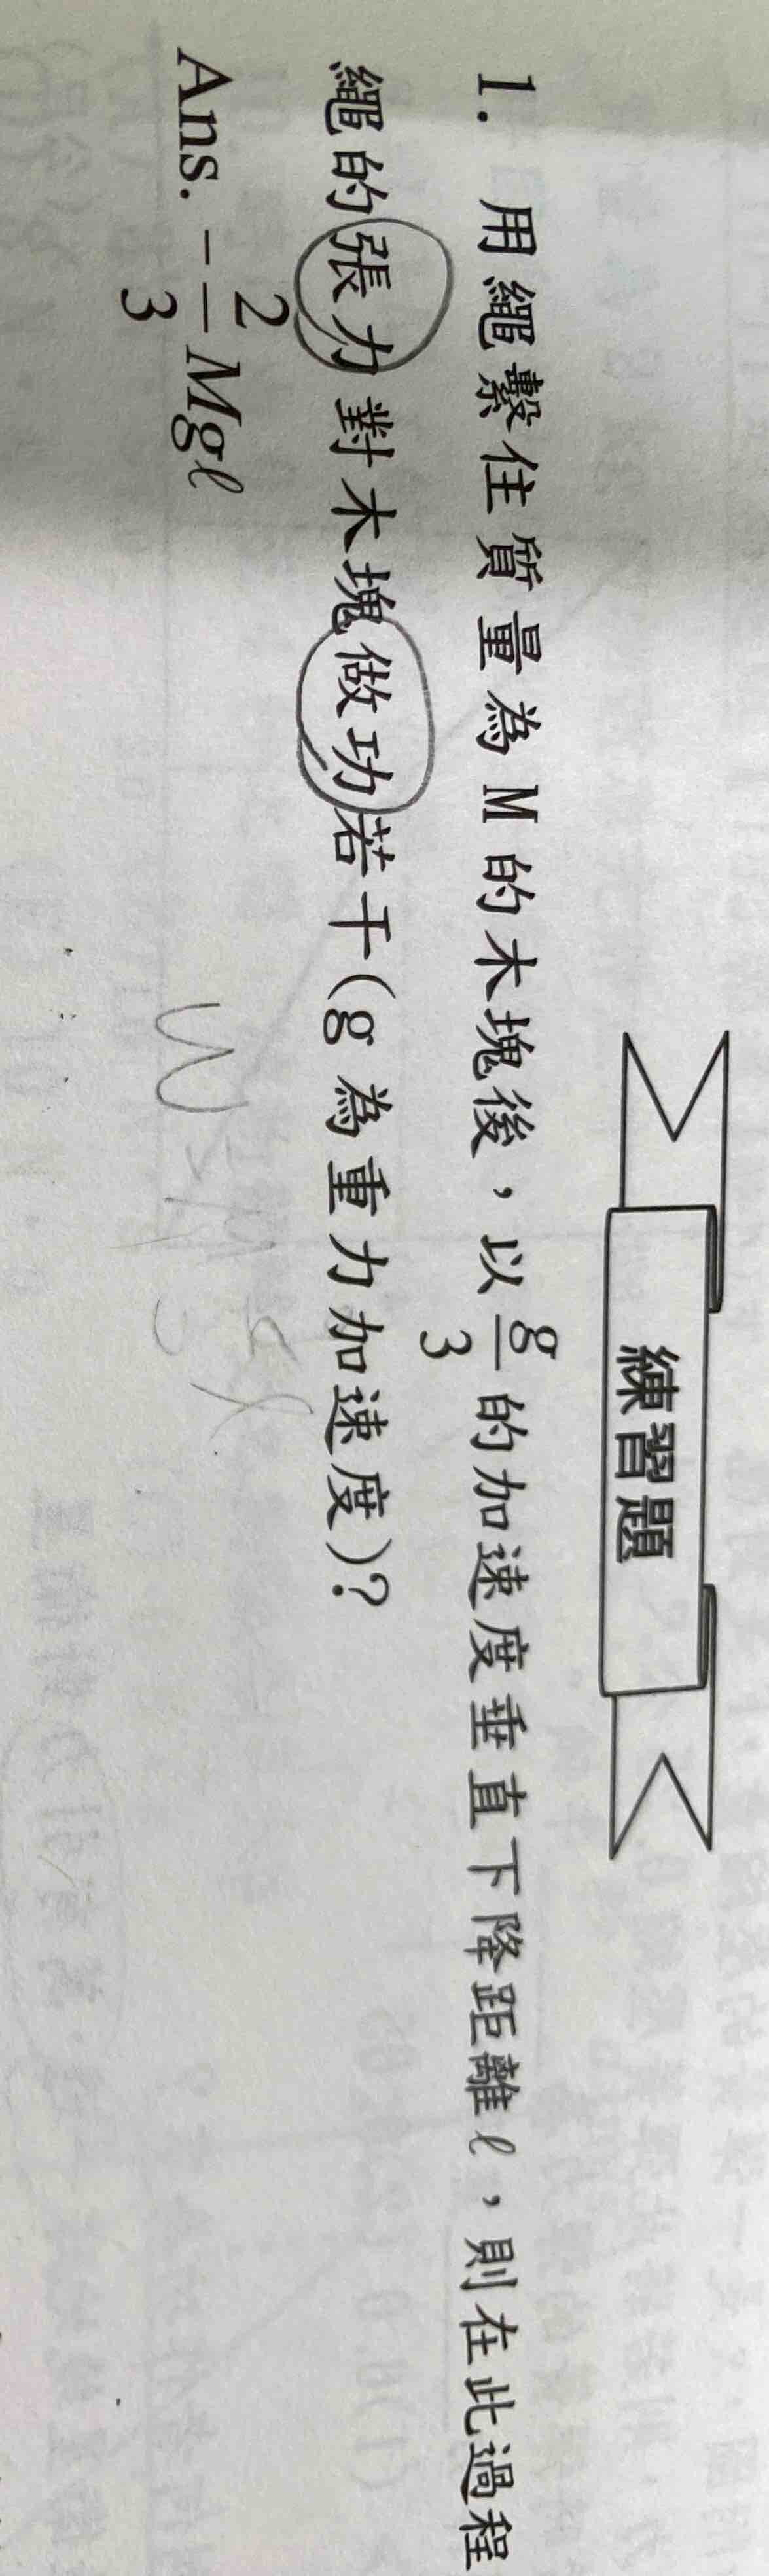 練習題
1. 用繩繫住質量為 M 的木塊後，以 g/3 的加速度垂直下降距離 ℓ，則在此過程
繩的張力對木塊做功若干(g 為重力加速度)?
Ans. -2/3 Mgℓ